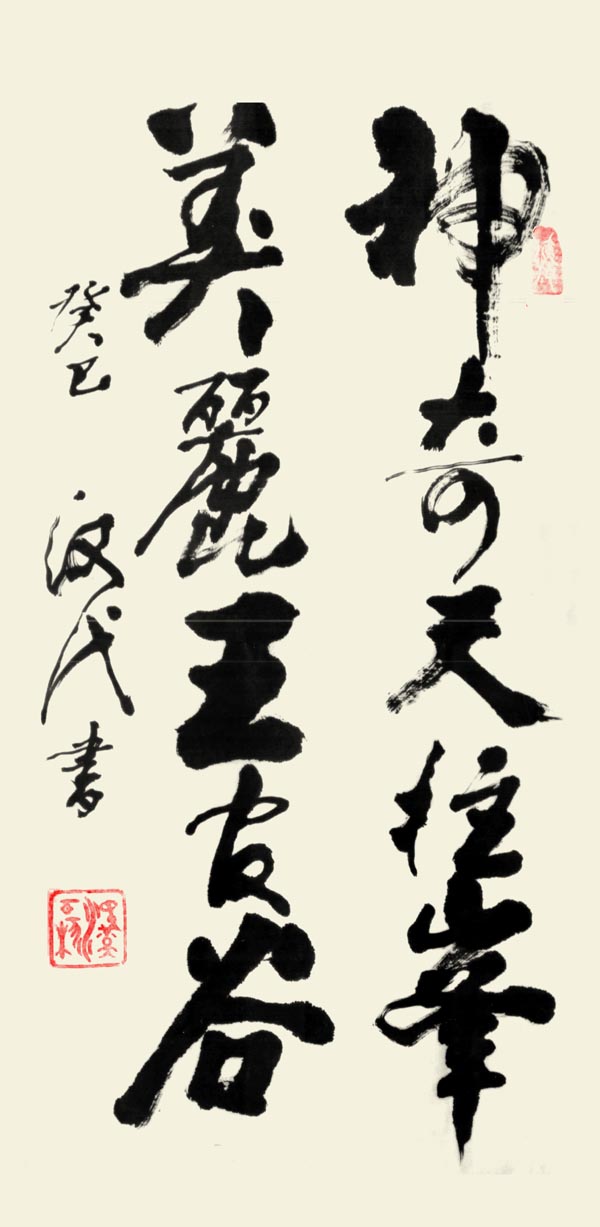 神奇天柱峯
美麗王官谷
癸巳 代書